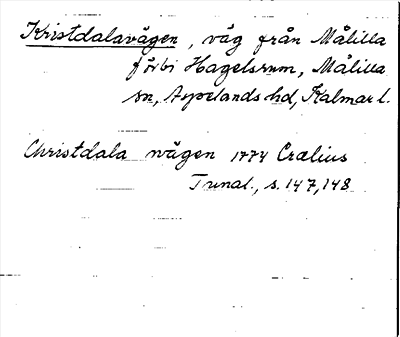 Kristdalavägen, väg från Målilla
förbi Hagelsrum, Målilla
sn, Aspelands hd, Kalmar l.
Christdala wägen 1774 Crælius
Tunal., s. 147, 148